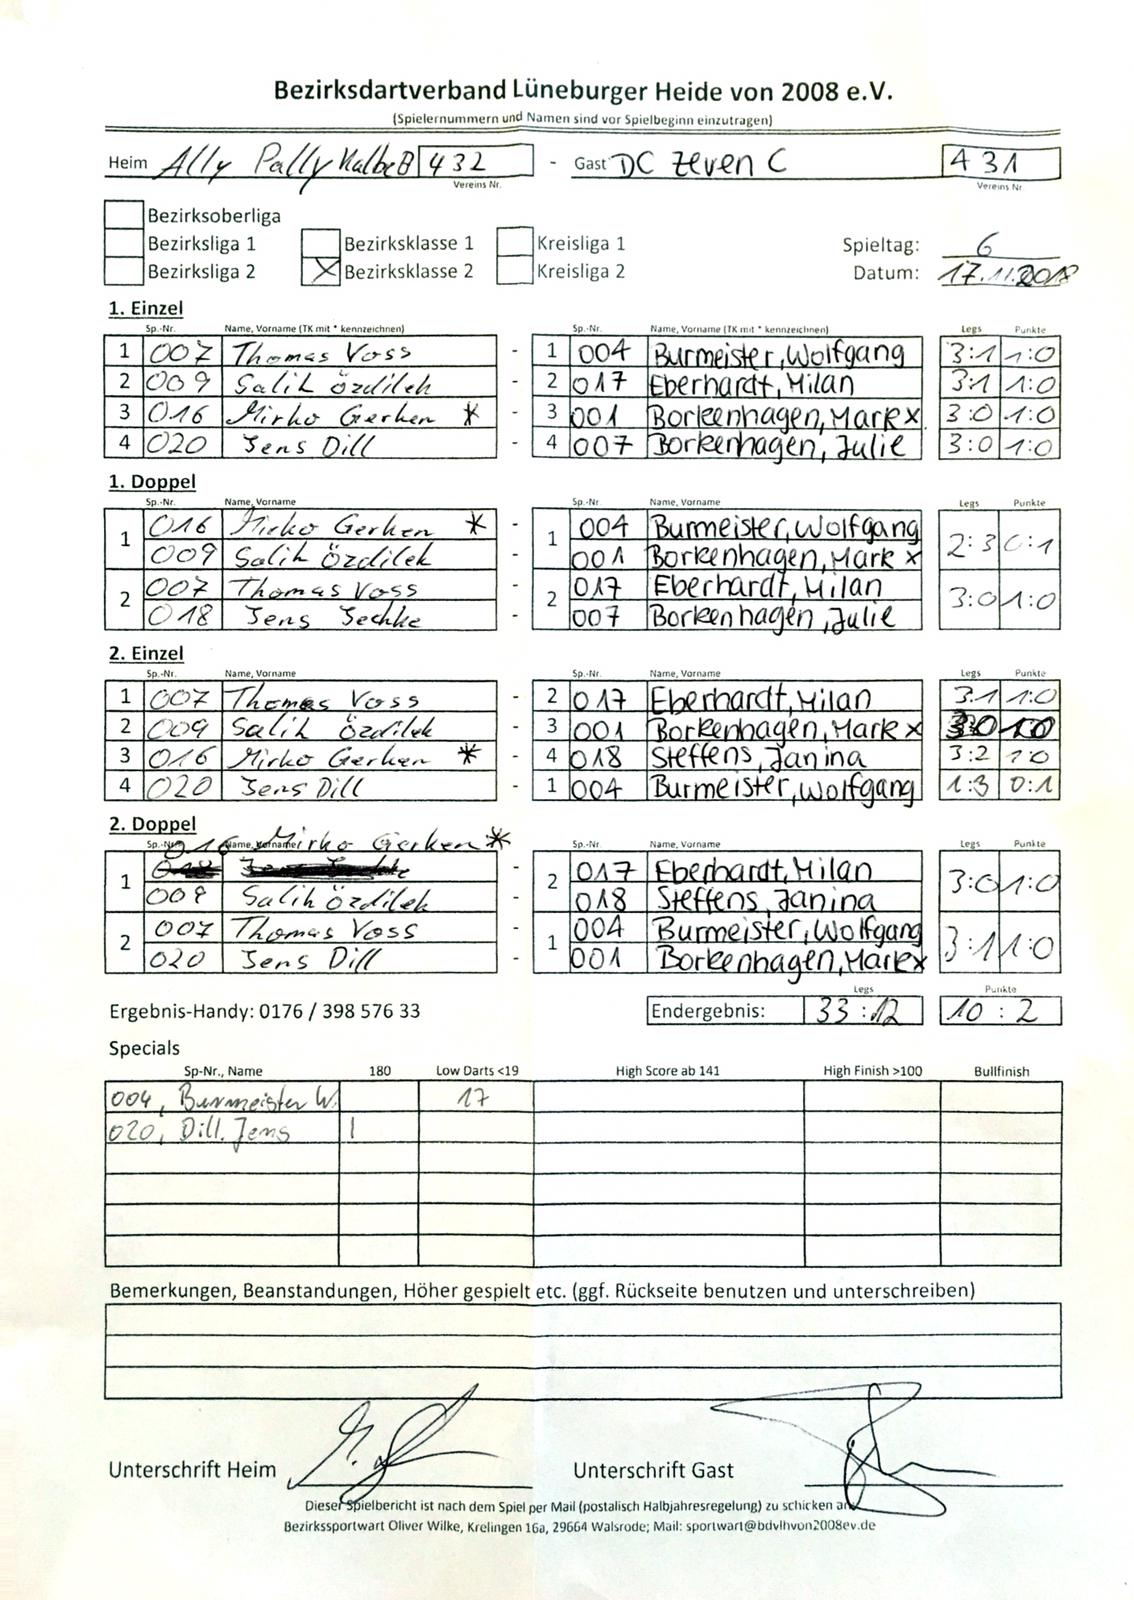 Bezirksdartverband Lüneburger Heide von 2008 e.V.
(Spielernummern und Namen sind vor Spielbeginn einzutragen)
Heim Ally Pally Kalbe B 432 - Gast DC Zeven C 431
Vereins Nr. Vereins Nr.
Bezirksoberliga
Bezirksliga 1 Bezirksklasse 1 Kreisliga 1 Spieltag: 6
Bezirksliga 2 X Bezirksklasse 2 Kreisliga 2 Datum: 17.11.2018
1. Einzel
Sp.-Nr. Name, Vorname (TK mit * kennzeichnen) Sp.-Nr. Name, Vorname (TK mit * kennzeichnen) Legs Punkte
1 007 Thomas Voss - 1 004 Burmeister, Wolfgang 3:1 1:0
2 009 Salih Özdilek - 2 017 Eberhardt, Milan 3:1 1:0
3 016 Mirko Gerken * - 3 001 Borkenhagen, Mark x 3:0 1:0
4 020 Jens Dill - 4 007 Borkenhagen, Julie 3:0 1:0
1. Doppel
Sp.-Nr. Name, Vorname Sp.-Nr Name, Vorname Legs Punkte
1 016 Mirko Gerken * - 1 004 Burmeister, Wolfgang 2:3 0:1
009 Salih Özdilek - 001 Borkenhagen, Mark x
2 007 Thomas Voss - 2 017 Eberhardt, Milan 3:0 1:0
018 Jens Jechke - 007 Borkenhagen, Julie
2. Einzel
Sp.-Nr. Name, Vorname Sp.-Nr. Name, Vorname Legs Punkte
1 007 Thomas Voss - 2 017 Eberhardt, Milan 3:1 1:0
2 009 Salih Özdilek - 3 001 Borkenhagen, Mark x 3:0 1:0
3 016 Mirko Gerken * - 4 018 Steffens, Janina 3:2 1:0
4 020 Jens Dill - 1 004 Burmeister, Wolfgang 1:3 0:1
2. Doppel
016 Mirko Gerken *
Sp.-Nr. Name, Vorname Sp.-Nr. Name, Vorname Legs Punkte
1 - 2 017 Eberhardt, Milan 3:0 1:0
009 Salih Özdilek - 018 Steffens, Janina
2 007 Thomas Voss - 1 004 Burmeister, Wolfgang 3:1 1:0
020 Jens Dill - 001 Borkenhagen, Mark x
Legs Punkte
Ergebnis-Handy: 0176 / 398 576 33 Endergebnis: 33:12 10:2
Specials
Sp-Nr., Name 180 Low Darts <19 High Score ab 141 High Finish >100 Bullfinish
004, Burmeister W. 17
020, Dill, Jens |
Bemerkungen, Beanstandungen, Höher gespielt etc. (ggf. Rückseite benutzen und unterschreiben)
Unterschrift Heim Unterschrift Gast
Dieser Spielbericht ist nach dem Spiel per Mail (postalisch Halbjahresregelung) zu schicken an
Bezirkssportwart Oliver Wilke, Krelingen 16a, 29664 Walsrode; Mail: sportwart@bdvlhvon2008ev.de